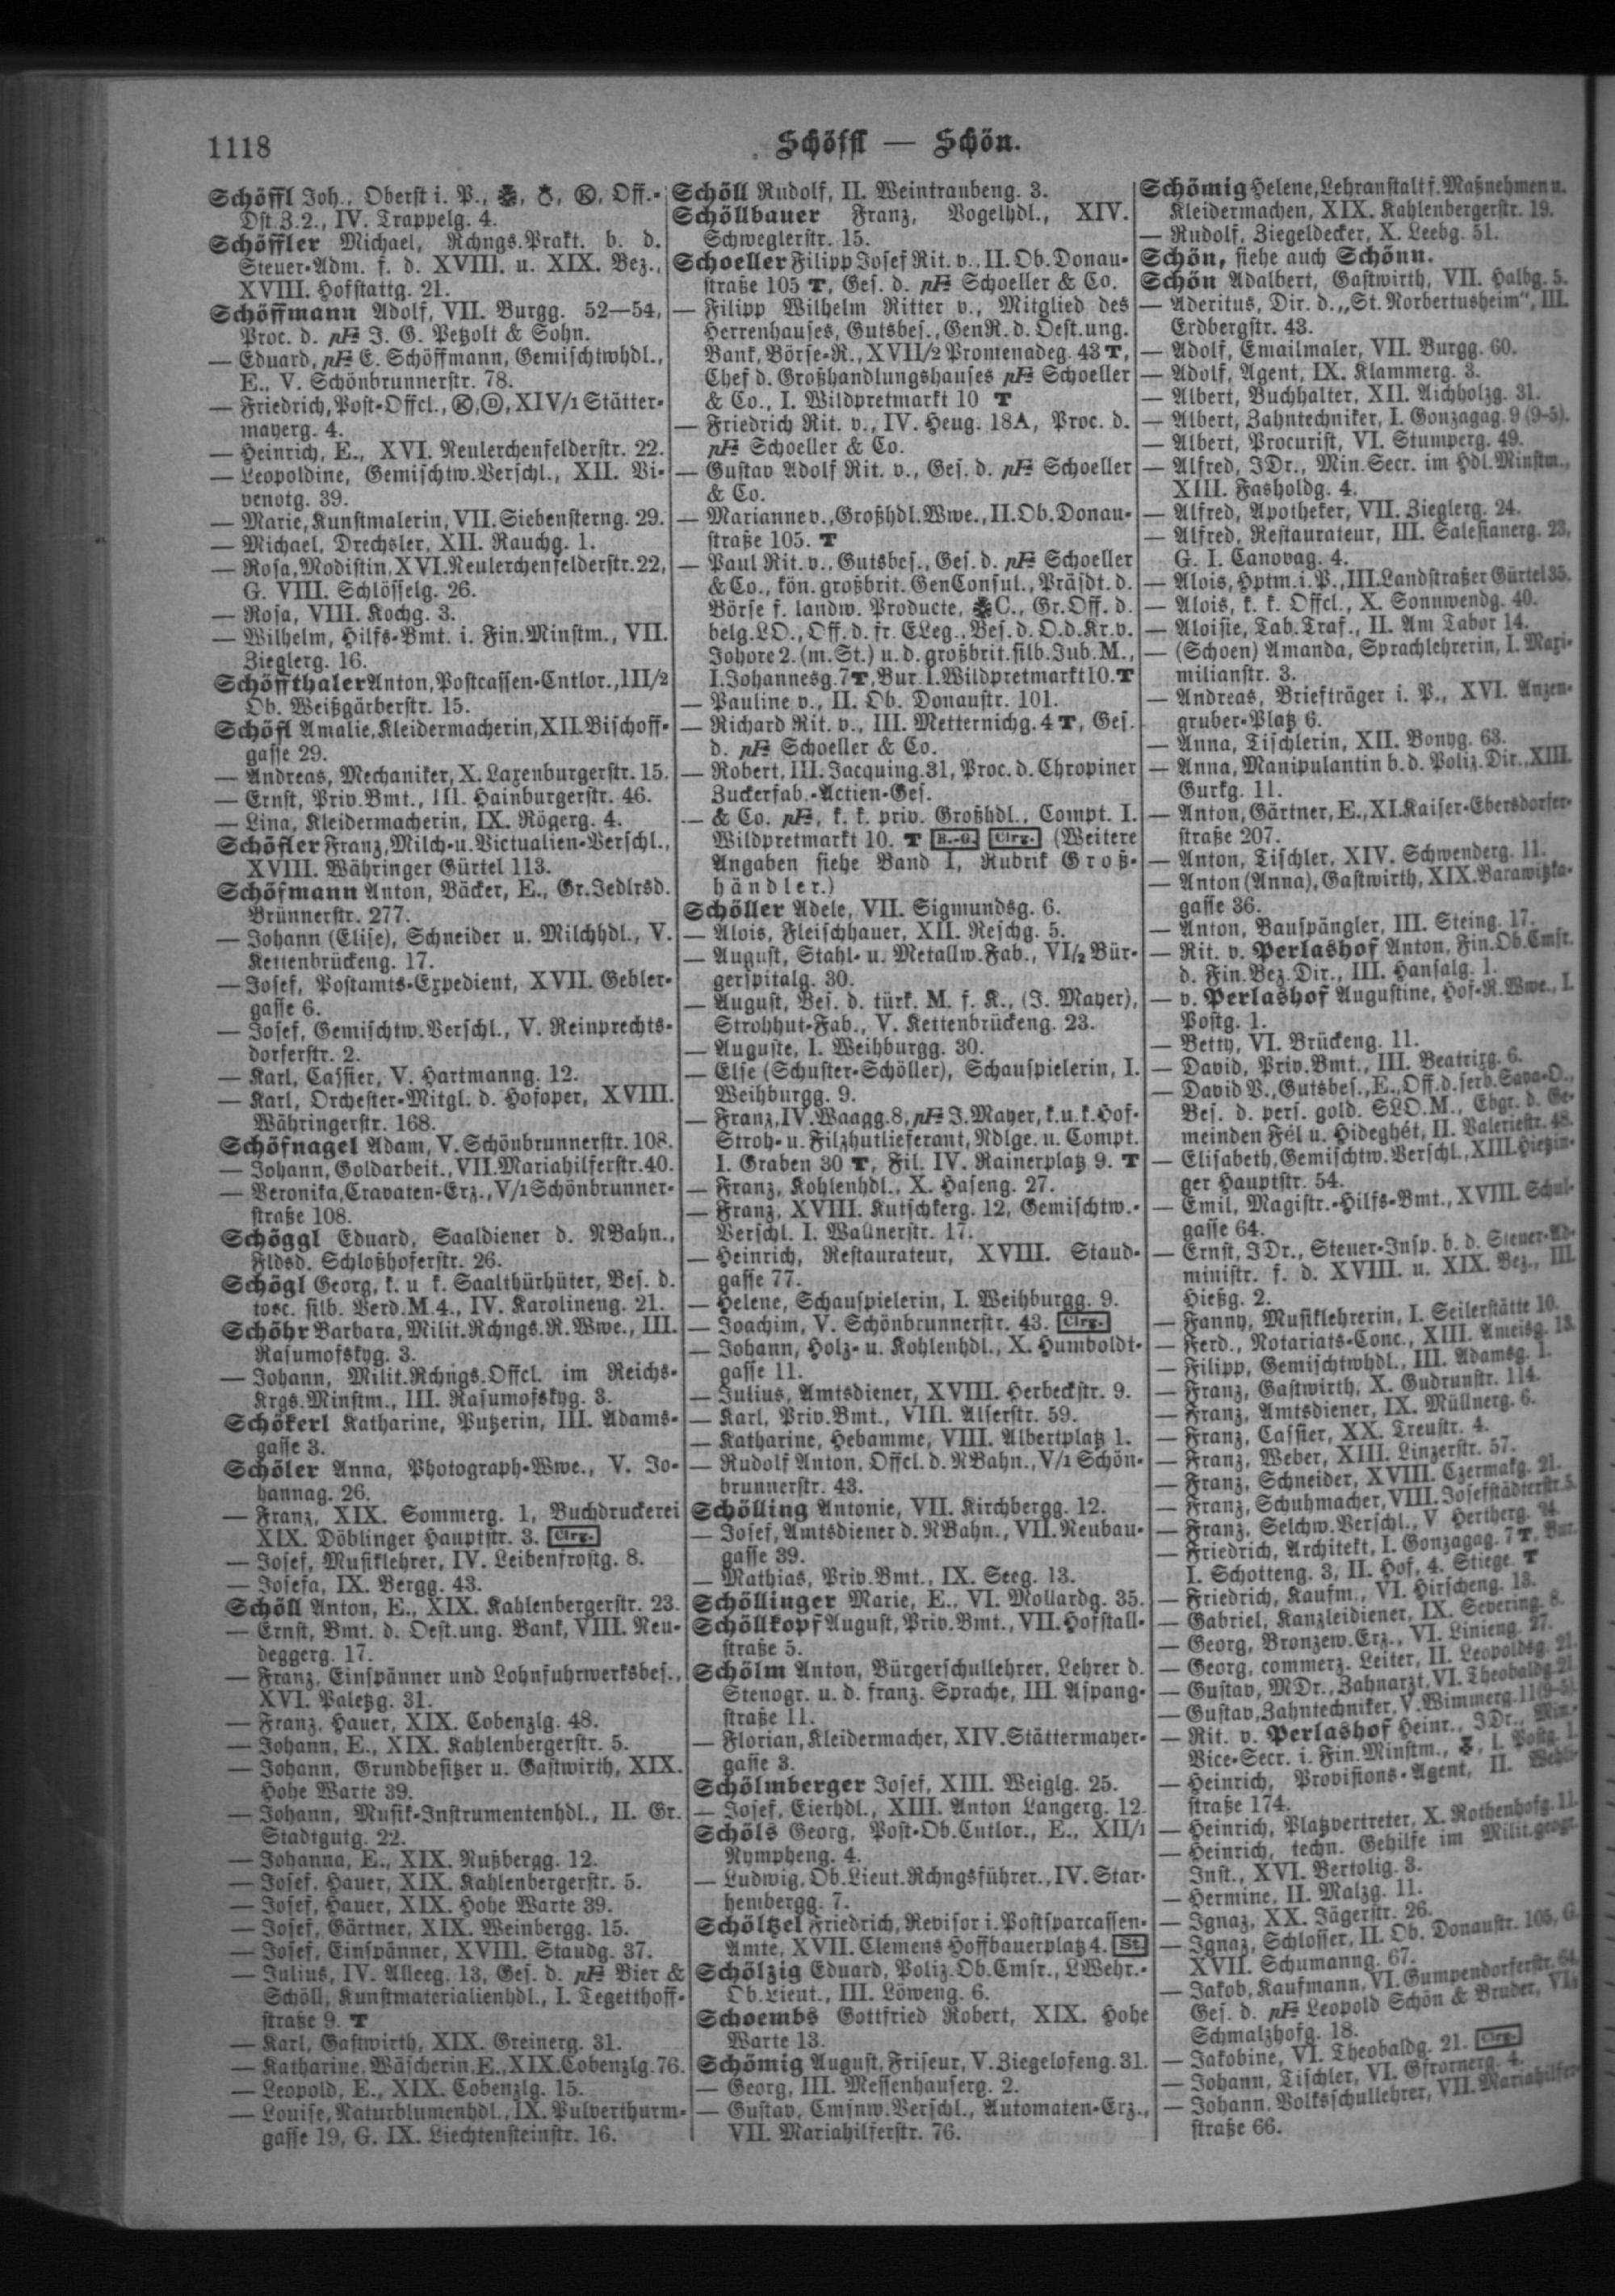 1118
Schöffl — Schön.
Schöffl Joh., Oberst i. P., Off.-
Dst.Z.2., IV. Trappelg. 4.
Schöffler Michael, Rchngs.Prakt. b. d.
Steuer-Adm. f. d. XVIII. u. XIX. Bez.,
XVIII. Hofstattg. 21.
Schöffmann Adolf, VII. Burgg. 52—54,
Proc. d. pF: J. G. Petzolt & Sohn.
— Eduard, pF: E. Schöffmann, Gemischtwhdl.,
E., V. Schönbrunnerstr. 78.
— Friedrich, Post-Offcl., Ⓚ, Ⓓ, XIV/1 Stätter-
mayerg. 4.
— Heinrich, E., XVI. Neulerchenfelderstr. 22.
— Leopoldine, Gemischtw.Verschl., XII. Vi-
venotg. 39.
— Marie, Kunstmalerin, VII. Siebensterng. 29.
— Michael, Drechsler, XII. Rauchg. 1.
— Rosa, Modistin, XVI. Neulerchenfelderstr. 22,
G. VIII. Schlösselg. 26.
— Rosa, VIII. Kochg. 3.
— Wilhelm, Hilfs-Bmt. i. Fin.Minstm., VII.
Zieglerg. 16.
Schöffthaler Anton, Postcassen-Cntlor., III/2
Ob. Weißgärberstr. 15.
Schöfl Amalie, Kleidermacherin, XII. Bischoff-
gasse 29.
— Andreas, Mechaniker, X. Laxenburgerstr. 15.
— Ernst, Priv.Bmt., III. Hainburgerstr. 46.
— Lina, Kleidermacherin, IX. Rögerg. 4.
Schöfler Franz, Milch- u. Victualien-Verschl.,
XVIII. Währinger Gürtel 113.
Schöfmann Anton, Bäcker, E., Gr. Jedlrsd.
Brünnerstr. 277.
— Johann (Elise), Schneider u. Milchhdl., V.
Kettenbrückeng. 17.
— Josef, Postamts-Expedient, XVII. Gebler-
gasse 6.
— Josef, Gemischtw.Verschl., V. Reinprechts-
dorferstr. 2.
— Karl, Cassier, V. Hartmanng. 12.
— Karl, Orchester-Mitgl. d. Hofoper, XVIII.
Währingerstr. 168.
Schöfnagel Adam, V. Schönbrunnerstr. 108.
— Johann, Goldarbeit., VII. Mariahilferstr. 40.
— Veronika, Cravaten-Erz., V/1 Schönbrunner-
straße 108.
Schöggl Eduard, Saaldiener d. NBahn.,
Fldsd. Schloßhoferstr. 26.
Schögl Georg, k. u. k. Saalthürhüter, Bes. d.
tosc. silb. Verd.M.4., IV. Karolineng. 21.
Schöhr Barbara, Milit.Rchngs.R.Wwe., III.
Rasumofskyg. 3.
— Johann, Milit.Rchngs.Offcl. im Reichs-
Krgs.Minstm., III. Rasumofskyg. 3.
Schökerl Katharine, Putzerin, III. Adams-
gasse 3.
Schöler Anna, Photograph-Wwe., V. Jo-
hannag. 26.
— Franz, XIX. Sommerg. 1, Buchdruckerei
XIX. Döblinger Hauptstr. 3. Clrg.
— Josef, Musiklehrer, IV. Leibenfrostg. 8.
— Josefa, IX. Bergg. 43.
Schöll Anton, E., XIX. Kahlenbergerstr. 23.
— Ernst, Bmt. d. Oest.ung. Bank, VIII. Neu-
deggerg. 17.
— Franz, Einspänner und Lohnfuhrwerksbes.,
XVI. Paletzg. 31.
— Franz, Hauer, XIX. Cobenzlg. 48.
— Johann, E., XIX. Kahlenbergerstr. 5.
— Johann, Grundbesitzer u. Gastwirth, XIX.
Hohe Warte 39.
— Johann, Musik-Instrumentenhdl., II. Gr.
Stadtgutg. 22.
— Johanna, E., XIX. Nußbergg. 12.
— Josef, Hauer, XIX. Kahlenbergerstr. 5.
— Josef, Hauer, XIX. Hohe Warte 39.
— Josef, Gärtner, XIX. Weinbergg. 15.
— Josef, Einspänner, XVIII. Staudg. 37.
— Julius, IV. Alleeg. 13, Ges. d. pF: Bier &
Schöll, Kunstmaterialienhdl., I. Tegetthoff-
straße 9. T
— Karl, Gastwirth, XIX. Greinerg. 31.
— Katharine, Wäscherin, E., XIX. Cobenzlg. 76.
— Leopold, E., XIX. Cobenzlg. 15.
— Louise, Naturblumenhdl., IX. Pulverthurm-
gasse 19, G. IX. Liechtensteinstr. 16.
Schöll Rudolf, II. Weintraubeng. 3.
Schöllbauer Franz, Vogelhdl., XIV.
Schweglerstr. 15.
Schoeller Filipp Josef Rit. v., II. Ob. Donau-
straße 105 T, Ges. d. pF: Schoeller & Co.
— Filipp Wilhelm Ritter v., Mitglied des
Herrenhauses, Gutsbes., GenR. d. Oest.ung.
Bank, Börse-R., XVII/2 Promenadeg. 43 T,
Chef d. Großhandlungshauses pF: Schoeller
& Co., I. Wildpretmarkt 10 T
— Friedrich Rit. v., IV. Heug. 18A, Proc. d.
pF: Schoeller & Co.
— Gustav Adolf Rit. v., Ges. d. pF: Schoeller
& Co.
— Marianne v., Großhdl.Wwe., II. Ob. Donau-
straße 105. T
— Paul Rit. v., Gutsbes., Ges. d. pF: Schoeller
& Co., kön. großbrit. GenConsul., Präsdt. d.
Börse f. landw. Producte, C., Gr.Off. d.
belg.LO., Off. d. fr. ELeg., Bes. d. O. d. Kr. v.
Johore 2. (m. St.) u. d. großbrit. silb. Jub. M.,
I. Johannesg. 7 T, Bur. I. Wildpretmarkt 10. T
— Pauline v., II. Ob. Donaustr. 101.
— Richard Rit. v., III. Metternichg. 4 T, Ges.
d. pF: Schoeller & Co.
— Robert, III. Jacquing. 31, Proc. d. Chropiner
Zuckerfab.-Actien-Ges.
— & Co. pF:, k. k. priv. Großhdl., Compt. I.
Wildpretmarkt 10. T B.-G. Clrg. (Weitere
Angaben siehe Band I, Rubrik Groß-
händler.)
Schöller Adele, VII. Sigmundsg. 6.
— Alois, Fleischhauer, XII. Reschg. 5.
— August, Stahl- u. Metallw.Fab., VI/2 Bür-
gerspitalg. 30.
— August, Bes. d. türk. M. f. K., (J. Mayer),
Strohhut-Fab., V. Kettenbrückeng. 23.
— Auguste, I. Weihburgg. 30.
— Else (Schuster-Schöller), Schauspielerin, I.
Weihburgg. 9.
— Franz, IV. Waagg. 8, pF: J. Mayer, k. u. k. Hof-
Stroh- u. Filzhutlieferant, Ndlge. u. Compt.
I. Graben 30 T, Fil. IV. Rainerplatz 9. T
— Franz, Kohlenhdl., X. Haseng. 27.
— Franz, XVIII. Kutschkerg. 12, Gemischtw.-
Verschl. I. Wallnerstr. 17.
— Heinrich, Restaurateur, XVIII. Staud-
gasse 77.
— Helene, Schauspielerin, I. Weihburgg. 9.
— Joachim, V. Schönbrunnerstr. 43. Clrg.
— Johann, Holz- u. Kohlenhdl., X. Humboldt-
gasse 11.
— Julius, Amtsdiener, XVIII. Herbeckstr. 9.
— Karl, Priv.Bmt., VIII. Alserstr. 59.
— Katharine, Hebamme, VIII. Albertplatz 1.
— Rudolf Anton, Offcl. d. NBahn., V/1 Schön-
brunnerstr. 43.
Schölling Antonie, VII. Kirchbergg. 12.
— Josef, Amtsdiener d. NBahn., VII. Neubau-
gasse 39.
— Mathias, Priv.Bmt., IX. Seeg. 13.
Schöllinger Marie, E., VI. Mollardg. 35.
Schöllkopf August, Priv.Bmt., VII. Hofstall-
straße 5.
Schölm Anton, Bürgerschullehrer, Lehrer d.
Stenogr. u. d. franz. Sprache, III. Aspang-
straße 11.
— Florian, Kleidermacher, XIV. Stättermayer-
gasse 3.
Schölmberger Josef, XIII. Weiglg. 25.
— Josef, Eierhdl., XIII. Anton Langerg. 12.
Schöls Georg, Post-Ob.Cntlor., E., XII/1
Nympheng. 4.
— Ludwig, Ob.Lieut.Rchngsführer., IV. Star-
hembergg. 7.
Schöltzel Friedrich, Revisor i. Postsparcassen-
Amte, XVII. Clemens Hoffbauerplatz 4. St.
Schölzig Eduard, Poliz.Ob.Cmsr., LWehr.-
Ob.Lieut., III. Löweng. 6.
Schoembs Gottfried Robert, XIX. Hohe
Warte 13.
Schömig August, Friseur, V. Ziegelofeng. 31.
— Georg, III. Messenhauserg. 2.
— Gustav, Cmsnw.Verschl., Automaten-Erz.,
VII. Mariahilferstr. 76.
Schömig Helene, Lehranstalt f. Maßnehmen u.
Kleidermachen, XIX. Kahlenbergerstr. 19.
— Rudolf, Ziegeldecker, X. Leebg. 51.
Schön, siehe auch Schönn.
Schön Adalbert, Gastwirth, VII. Halbg. 5.
— Aderitus, Dir. d. „St. Norbertusheim“, III.
Erdbergstr. 43.
— Adolf, Emailmaler, VII. Burgg. 60.
— Adolf, Agent, IX. Klammerg. 3.
— Albert, Buchhalter, XII. Aichholzg. 31.
— Albert, Zahntechniker, I. Gonzagag. 9 (9-5).
— Albert, Procurist, VI. Stumperg. 49.
— Alfred, JDr., Min.Secr. im Hdl.Minstm.,
XIII. Fasholdg. 4.
— Alfred, Apotheker, VII. Zieglerg. 24.
— Alfred, Restaurateur, III. Salesianerg. 23,
G. I. Canovag. 4.
— Alois, Hptm. i. P., III. Landstraßer Gürtel 35.
— Alois, k. k. Offcl., X. Sonnwendg. 40.
— Aloisie, Tab.Traf., II. Am Tabor 14.
— (Schoen) Amanda, Sprachlehrerin, I. Maxi-
milianstr. 3.
— Andreas, Briefträger i. P., XVI. Anzen-
gruber-Platz 6.
— Anna, Tischlerin, XII. Bonyg. 63.
— Anna, Manipulantin b. d. Poliz.Dir., XIII.
Gurkg. 11.
— Anton, Gärtner, E., XI. Kaiser-Ebersdorfer-
straße 207.
— Anton, Tischler, XIV. Schwenderg. 11.
— Anton (Anna), Gastwirth, XIX. Barawitzka-
gasse 36.
— Anton, Bauspängler, III. Steing. 17.
— Rit. v. Perlashof Anton, Fin.Ob.Cmsr.
d. Fin.Bez.Dir., III. Hansalg. 1.
— v. Perlashof Augustine, Hof-R.Wwe., I.
Postg. 1.
— Betty, VI. Brückeng. 11.
— David, Priv.Bmt., III. Beatrixg. 6.
— David V., Gutsbes., E., Off. d. serb. Sava-O.,
Bes. d. pers. gold. SLO.M., Ebgr. d. Ge-
meinden Fél u. Hideghét, II. Valeriestr. 48.
— Elisabeth, Gemischtw.Verschl., XIII. Hietzin-
ger Hauptstr. 54.
— Emil, Magistr.-Hilfs-Bmt., XVIII. Schul-
gasse 64.
— Ernst, JDr., Steuer-Insp. b. d. Steuer-Ad-
ministr. f. d. XVIII. u. XIX. Bez., III.
Hießg. 2.
— Fanny, Musiklehrerin, I. Seilerstätte 10.
— Ferd., Notariats-Conc., XIII. Ameisg. 13.
— Filipp, Gemischtwhdl., III. Adamsg. 1.
— Franz, Gastwirth, X. Gudrunstr. 114.
— Franz, Amtsdiener, IX. Müllnerg. 6.
— Franz, Cassier, XX. Treustr. 4.
— Franz, Weber, XIII. Linzerstr. 57.
— Franz, Schneider, XVIII. Czermakg. 21.
— Franz, Schuhmacher, VIII. Josefstädterstr. 5.
— Franz, Selchw.Verschl., V Hertherg. 24.
— Friedrich, Architekt, I. Gonzagag. 7 T, Bur.
I. Schotteng. 3, II. Hof, 4. Stiege. T
— Friedrich, Kaufm., VI. Hirscheng. 13.
— Gabriel, Kanzleidiener, IX. Severing. 8.
— Georg, Bronzew.Erz., VI. Linieng. 27.
— Georg, commerz. Leiter, II. Leopoldsg. 21.
— Gustav, MDr., Zahnarzt, VI. Theobaldg. 21.
— Gustav, Zahntechniker, V. Wimmerg. 11 (9-5).
— Rit. v. Perlashof Heinr., JDr., Min.-
Vice-Secr. i. Fin.Minstm., I. Postg. 1.
— Heinrich, Provisions-Agent, II. Wehli-
straße 174.
— Heinrich, Platzvertreter, X. Rothenhofg. 11.
— Heinrich, techn. Gehilfe im Milit.geogr.
Inst., XVI. Bertolig. 3.
— Hermine, II. Malzg. 11.
— Ignaz, XX. Jägerstr. 26.
— Ignaz, Schlosser, II. Ob. Donaustr. 105, G.
XVII. Schumanng. 67.
— Jakob, Kaufmann, VI. Gumpendorferstr. 64,
Ges. d. pF: Leopold Schön & Bruder,
Schmalzhofg. 18.
— Jakobine, VI. Theobaldg. 21. Clrg.
— Johann, Tischler, VI. Gfrornerg. 4.
— Johann, Volksschullehrer, VII. Mariahilfer-
straße 66.